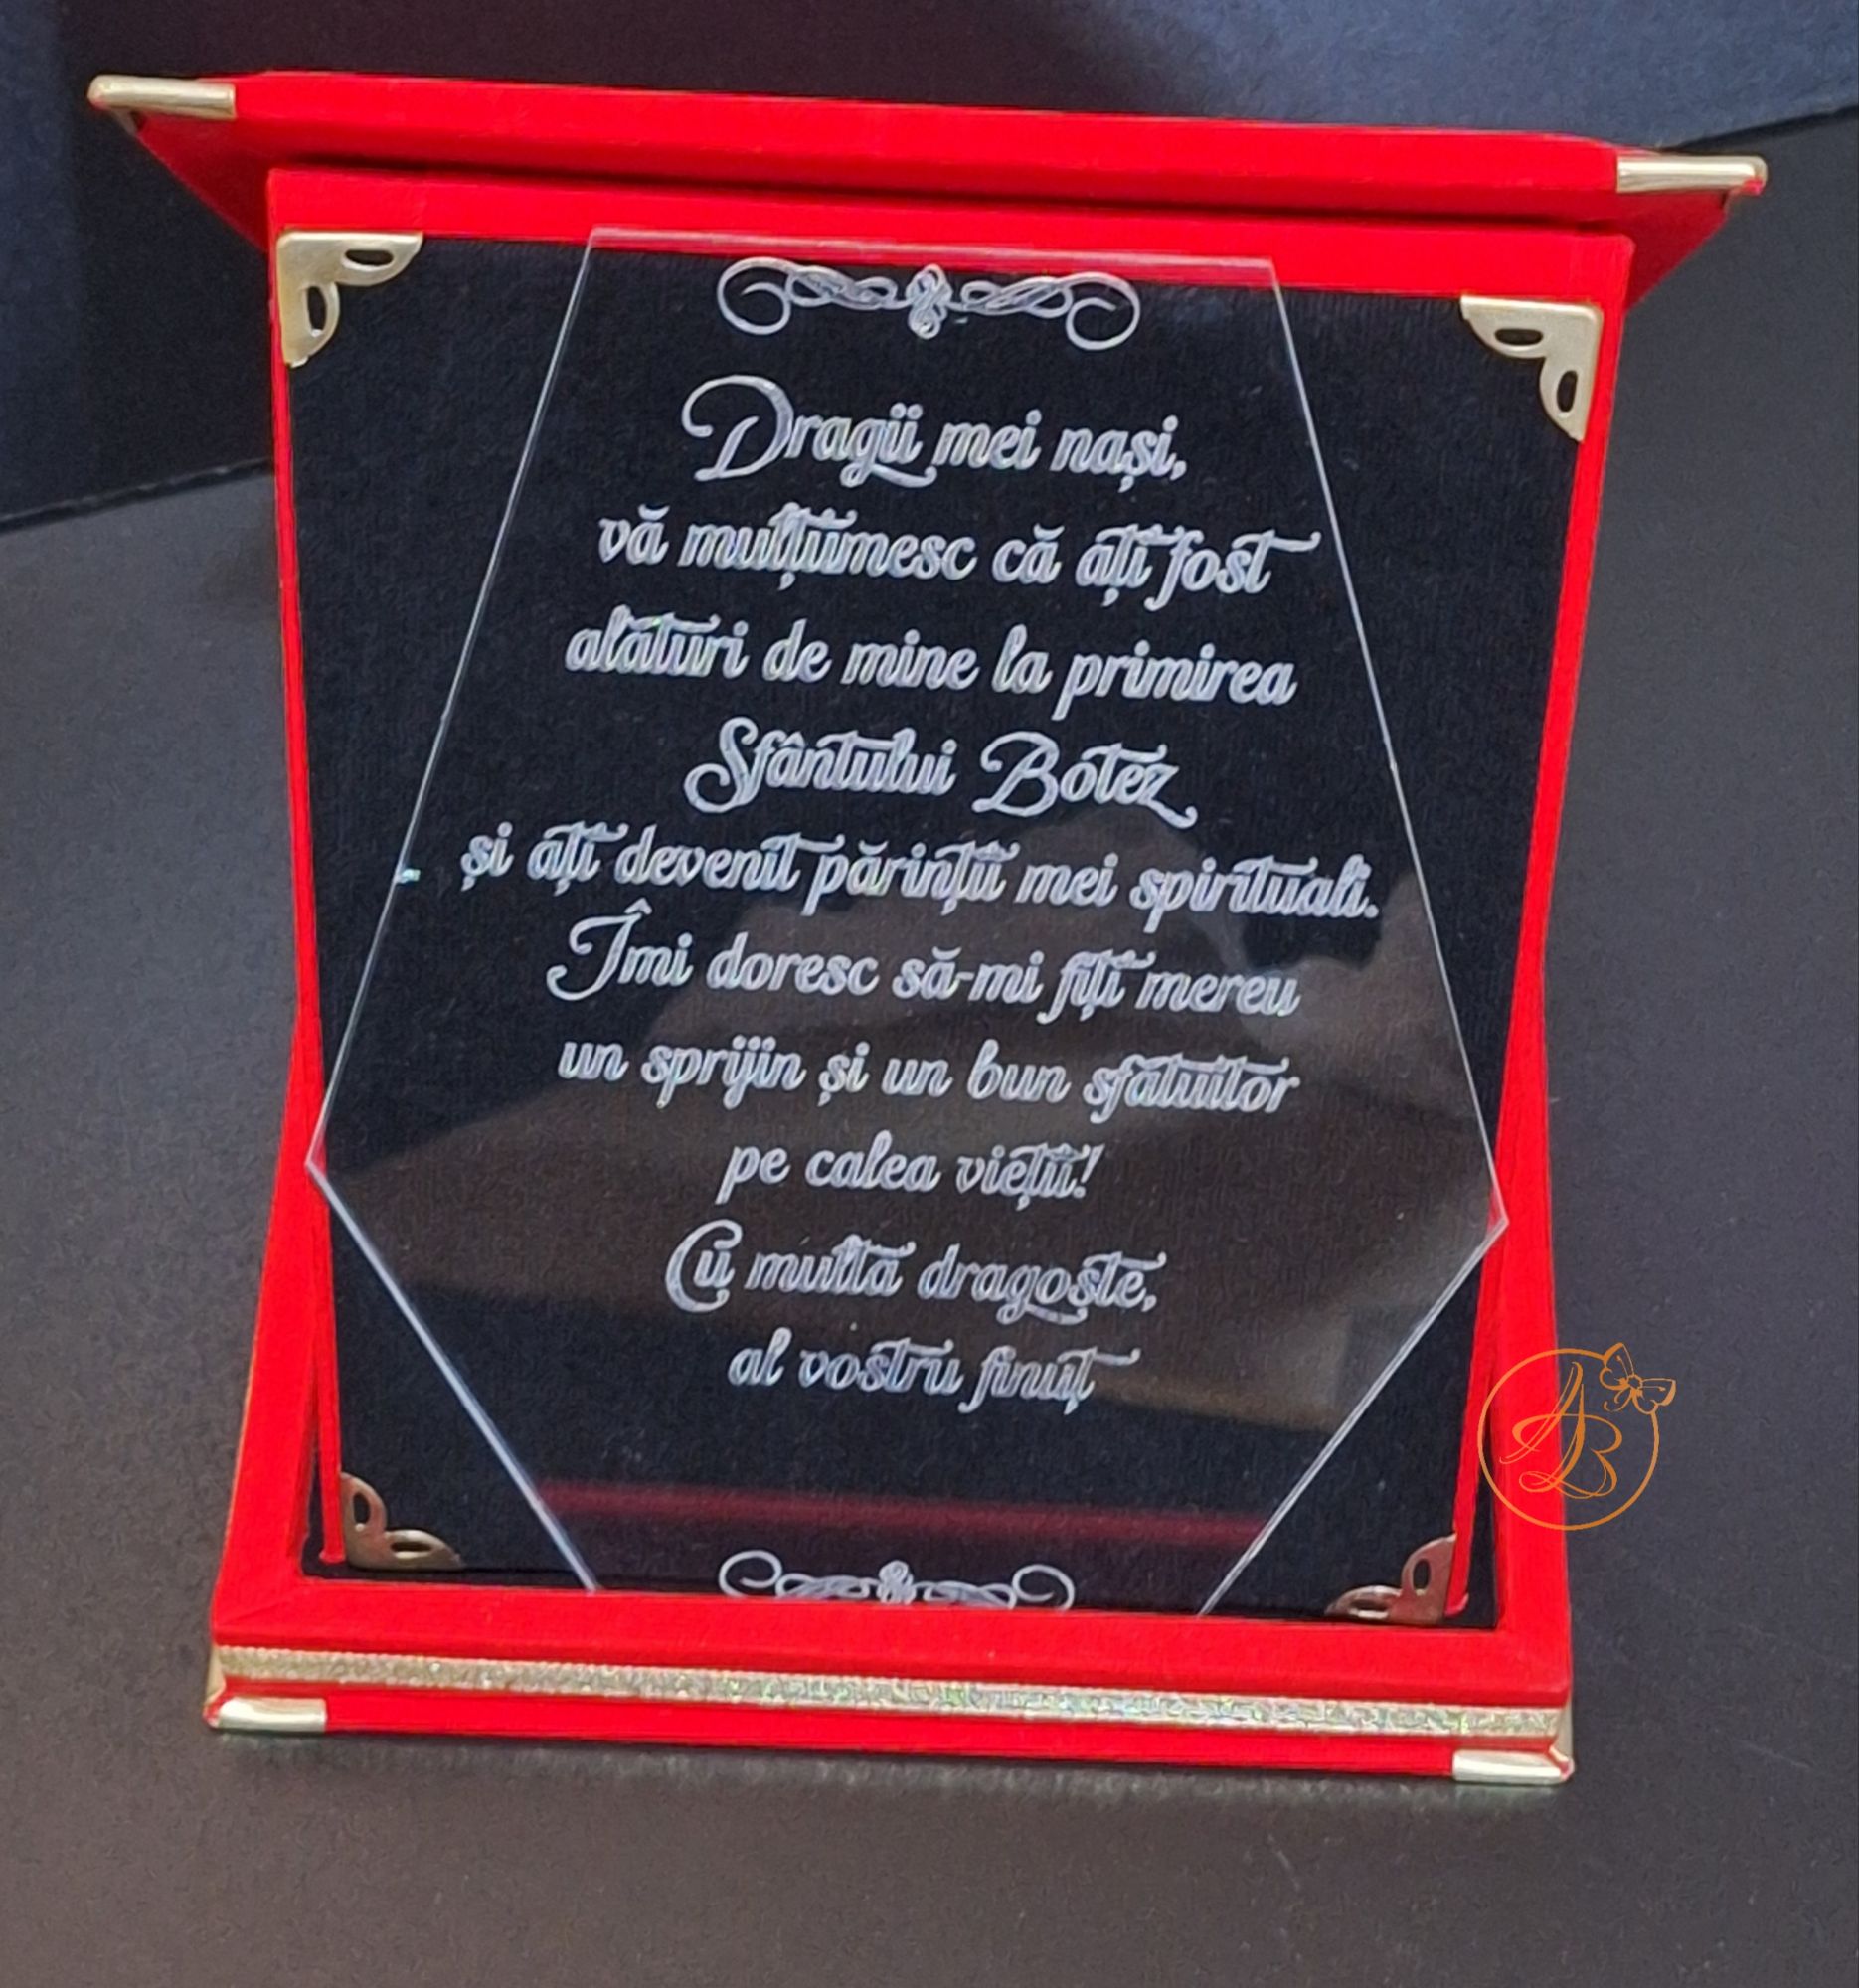 Dragii mei nași,
vă mulțumesc că ați fost
alături de mine la primirea
Sfântului Botez
și ați devenit părinții mei spirituali.
Îmi doresc să-mi fiți mereu
un sprijin și un bun sfătuitor
pe calea vieții!
Cu multă dragoste,
al vostru finuț
AB